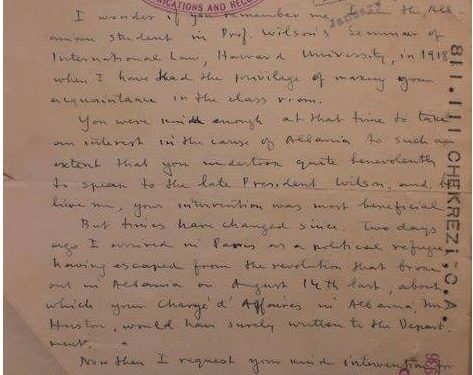 ICATIONS AND RECO
I wonder if you remember me. I am the Alb-
anian student in Prof. Wilson's seminar of
International Law, Harvard University, in 1918
when I have had the privilege of making your
acquaintance in the class room.
You were kind enough at that time to take
an interest in the cause of Albania to such an
extent that you undertook quite benevolently
to speak to the late President Wilson, and, be
lieve me, your intervention was most beneficial
But times have changed since. Two days
ago I arrived in Paris as a political refugee
having escaped from the revolution that broke
out in Albania on August 14th last, about
which your Chargé d'Affaires in Albania, Mr.
Huston, would have surely written to the Depart
ment.
Now then I request your kind intervention for
811.111 CHEKREZI, C.A.